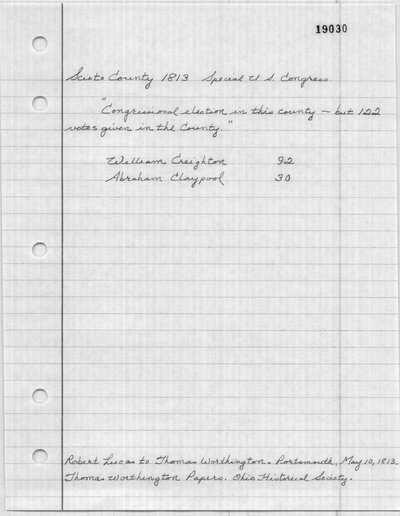 19030
Scioto County 1813 Special U.S. Congress.
"Congressional election in this county - but 122
votes given in the County."
William Creighton 92
Abraham Claypool 30
Robert Lucas to Thomas Worthington. Portsmouth, May 10, 1813.
Thomas Worthington Papers. Ohio Historical Society.